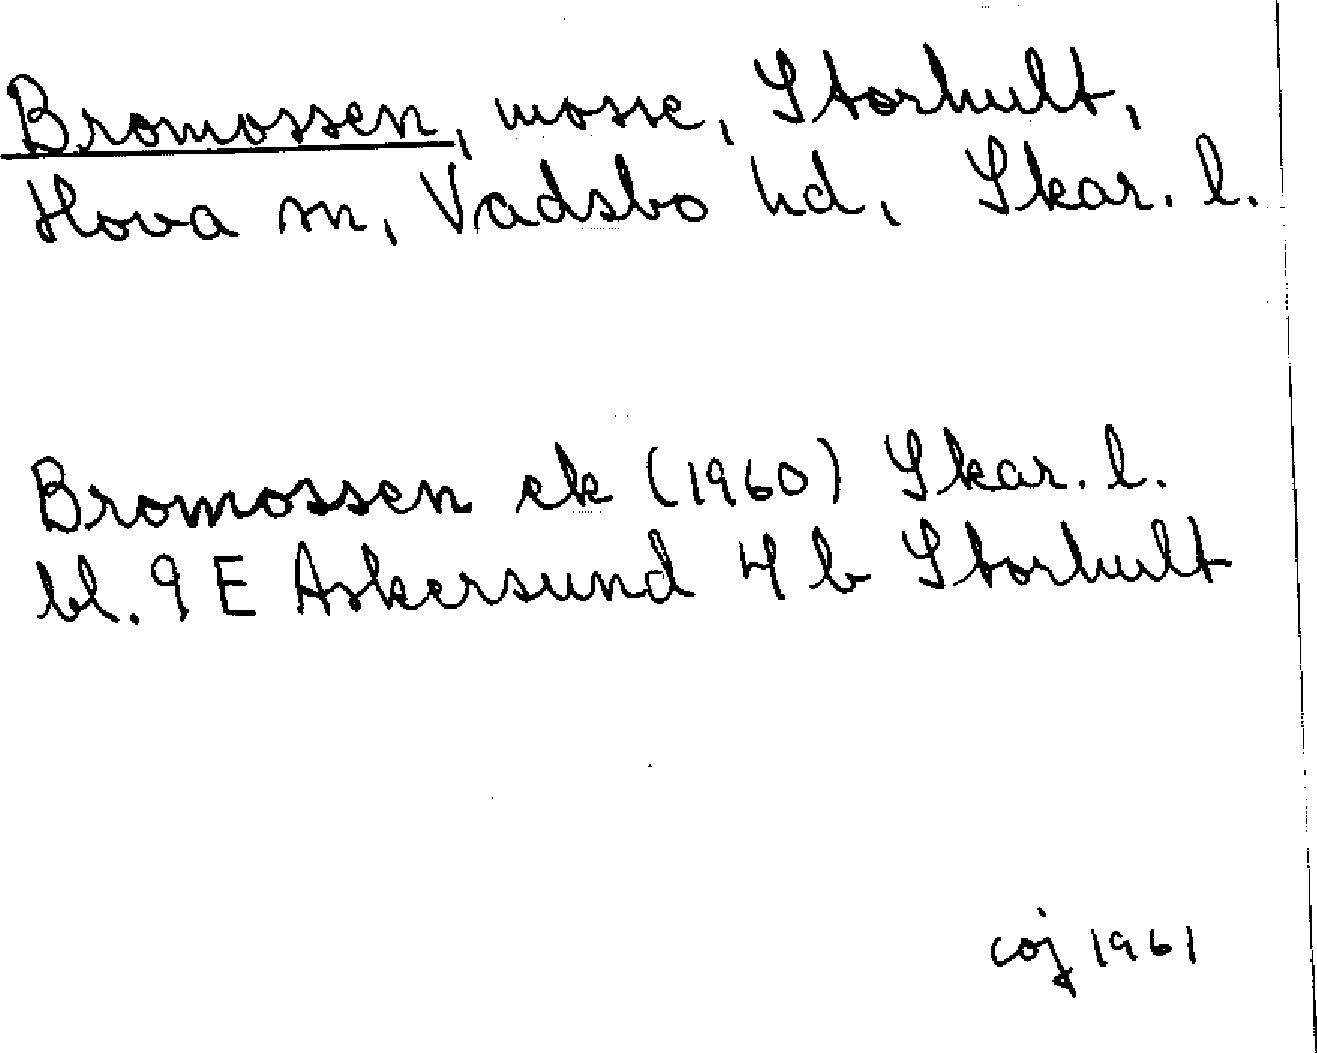 Bromossen, mosse, Storhult,
Hova sn, Vadsbo hd, Skar. l.
Bromossen ek (1960) Skar. l.
bl. 9 E Askersund 4 b Storhult
coj 1961